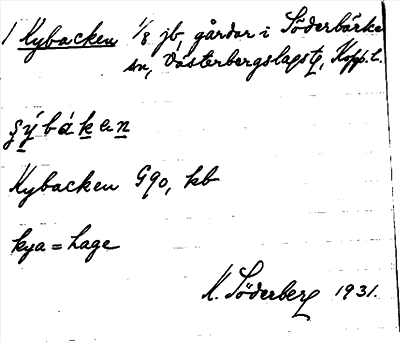 1 Kybacken 1/8 jb, gårdar i Söderbärke
sn, Västerbergslags tg, Kopp. l.
Kybacken G90, kb
kya = hage
K. Söderberg 1931.